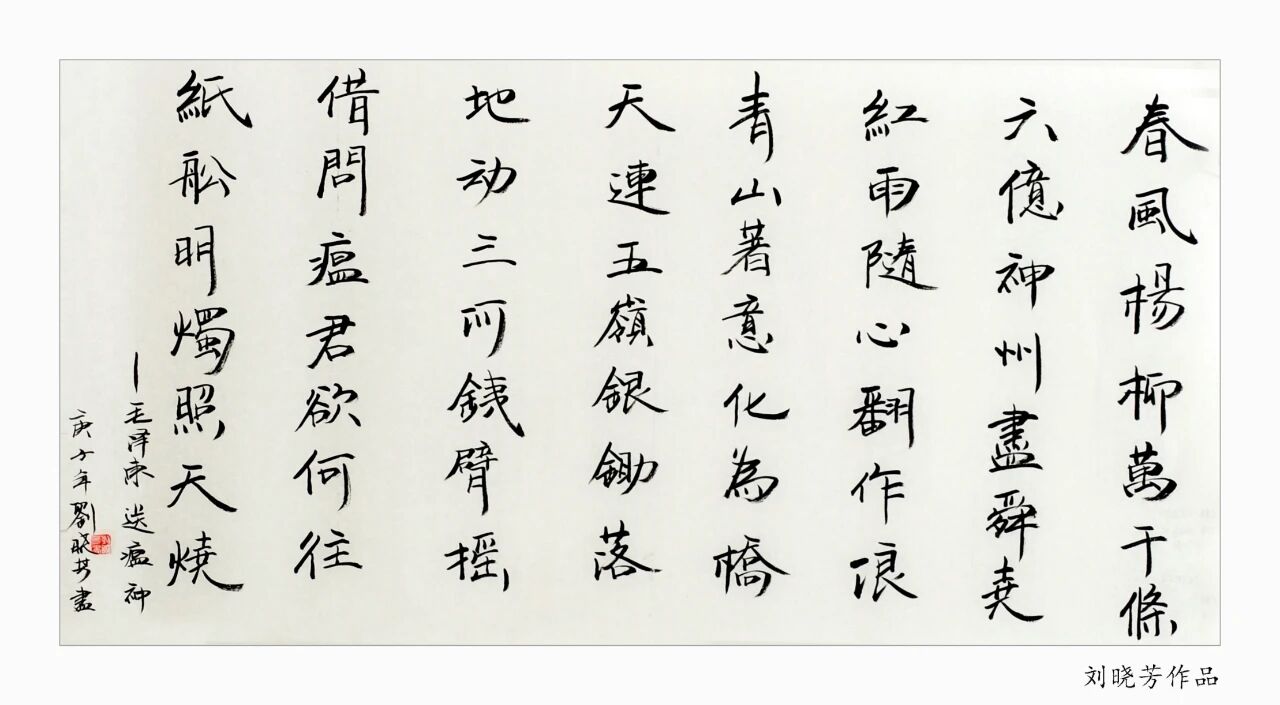 春風楊柳萬千條
六億神州盡舜堯
紅雨隨心翻作浪
青山著意化為橋
天連五嶺銀鋤落
地动三河鐵臂摇
借問瘟君欲何往
紙船明燭照天燒
毛泽东送瘟神
庚子年劉晓芳書
刘晓芳作品